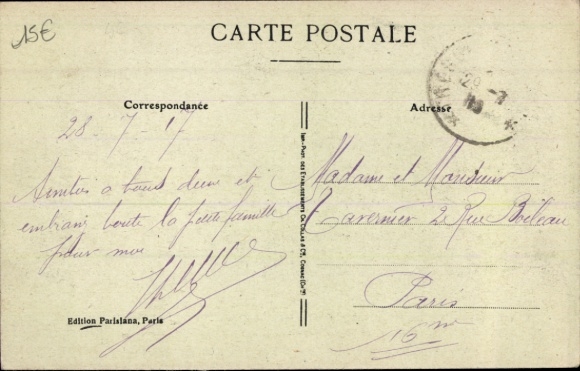 15€
CARTE POSTALE
Correspondance
Adresse
28-7-17
Amitiés a tous deux et
embrassez toute la petite famille
pour moi
Madame et Monsieur
Tavernier 2 Rue Boileau
Paris
16me
Edition Parisiana, Paris
IMP.-PHOT. DES ETABLISSEMENTS CH. COLLAS & Cie, COGNAC (Cte)